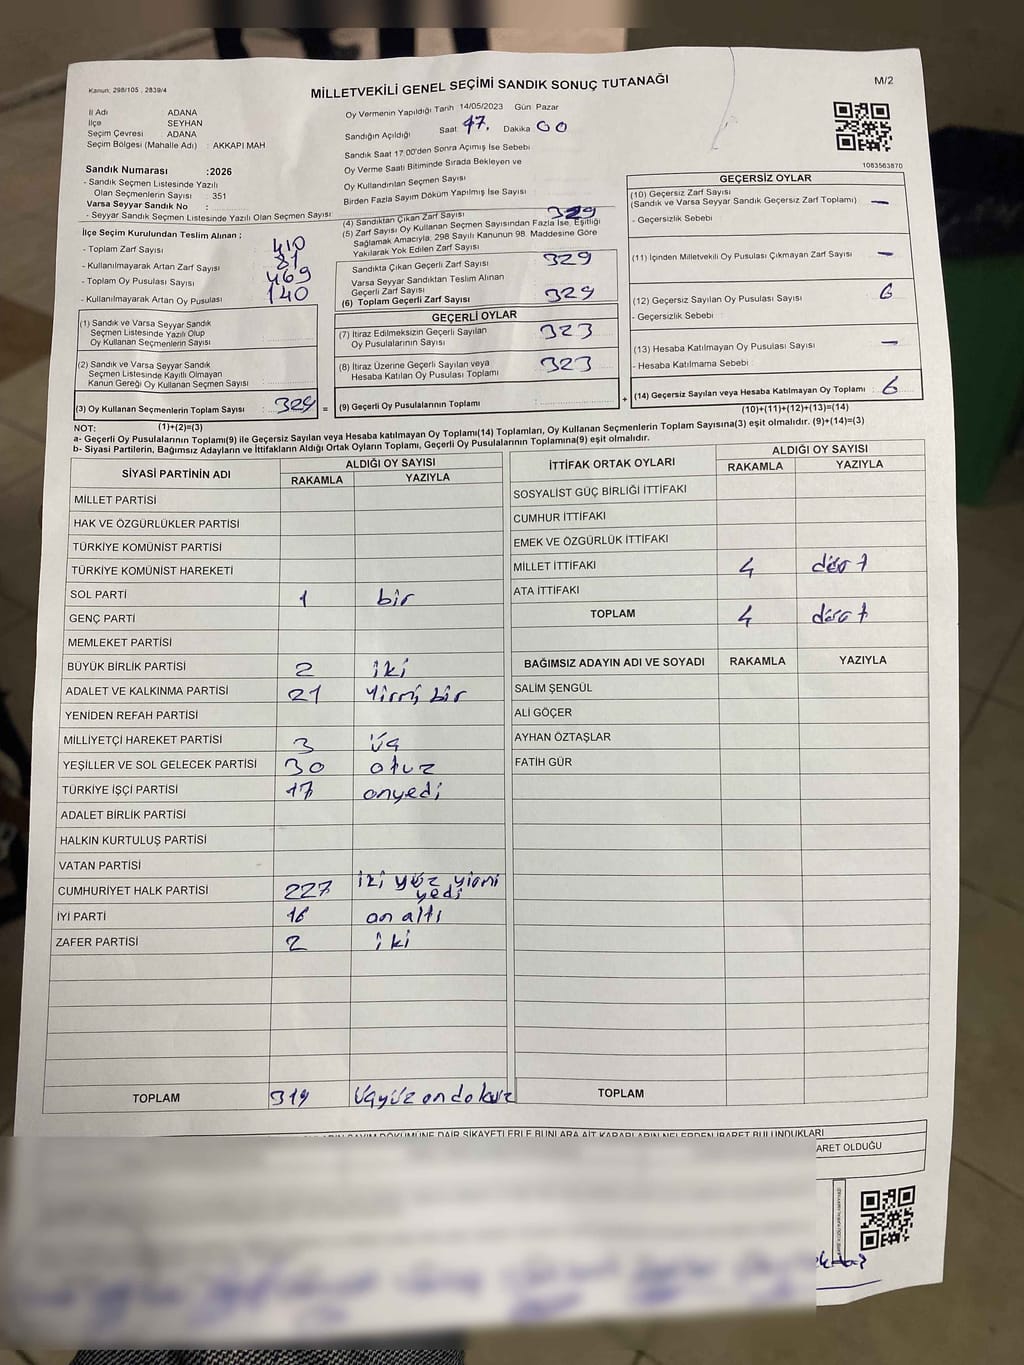 Kanun: 298/105 , 2839/4
MİLLETVEKİLİ GENEL SEÇİMİ SANDIK SONUÇ TUTANAĞI
M/2
İl Adı ADANA
İlçe SEYHAN
Seçim Çevresi : ADANA
Seçim Bölgesi (Mahalle Adı) : AKKAPI MAH
Sandık Numarası :2026
- Sandık Seçmen Listesinde Yazılı
Olan Seçmenlerin Sayısı : 351
Varsa Seyyar Sandık No :
- Seyyar Sandık Seçmen Listesinde Yazılı Olan Seçmen Sayısı:
Oy Vermenin Yapıldığı Tarih 14/05/2023 Gün Pazar
Sandığın Açıldığı Saat 17. Dakika 00
Sandık Saat 17:00'den Sonra Açımış İse Sebebi
Oy Verme Saati Bitiminde Sırada Bekleyen ve
Oy Kullandırılan Seçmen Sayısı
Birden Fazla Sayım Döküm Yapılmış İse Sayısı
1083563870
İlçe Seçim Kurulundan Teslim Alınan ;
- Toplam Zarf Sayısı : 410
- Kullanılmayarak Artan Zarf Sayısı : 81
- Toplam Oy Pusulası Sayısı : 469
- Kullanılmayarak Artan Oy Pusulası : 140
(1) Sandık ve Varsa Seyyar Sandık
Seçmen Listesinde Yazılı Olup
Oy Kullanan Seçmenlerin Sayısı :
(2) Sandık ve Varsa Seyyar Sandık
Seçmen Listesinde Kayıtlı Olmayan
Kanun Gereği Oy Kullanan Seçmen Sayısı :
(3) Oy Kullanan Seçmenlerin Toplam Sayısı : 329 =
(1)+(2)=(3)
(4) Sandıktan Çıkan Zarf Sayısı 329
(5) Zarf Sayısı Oy Kullanan Seçmen Sayısından Fazla İse, Eşitliği
Sağlamak Amacıyla, 298 Sayılı Kanunun 98. Maddesine Göre
Yakılarak Yok Edilen Zarf Sayısı
Sandıkta Çıkan Geçerli Zarf Sayısı 329
Varsa Seyyar Sandıktan Teslim Alınan
Geçerli Zarf Sayısı
(6) Toplam Geçerli Zarf Sayısı 329
GEÇERLİ OYLAR
(7) İtiraz Edilmeksizin Geçerli Sayılan
Oy Pusulalarının Sayısı 323
(8) İtiraz Üzerine Geçerli Sayılan veya
Hesaba Katılan Oy Pusulası Toplamı 323
(9) Geçerli Oy Pusulalarının Toplamı : +
GEÇERSİZ OYLAR
(10) Geçersiz Zarf Sayısı
(Sandık ve Varsa Seyyar Sandık Geçersiz Zarf Toplamı) : —
- Geçersizlik Sebebi
(11) İçinden Milletvekili Oy Pusulası Çıkmayan Zarf Sayısı : —
(12) Geçersiz Sayılan Oy Pusulası Sayısı : 6
- Geçersizlik Sebebi :
(13) Hesaba Katılmayan Oy Pusulası Sayısı : —
- Hesaba Katılmama Sebebi :
(14) Geçersiz Sayılan veya Hesaba Katılmayan Oy Toplamı : 6
(10)+(11)+(12)+(13)=(14)
NOT:
a- Geçerli Oy Pusulalarının Toplamı(9) ile Geçersiz Sayılan veya Hesaba katılmayan Oy Toplamı(14) Toplamları, Oy Kullanan Seçmenlerin Toplam Sayısına(3) eşit olmalıdır. (9)+(14)=(3)
b- Siyasi Partilerin, Bağımsız Adayların ve İttifakların Aldığı Ortak Oyların Toplamı, Geçerli Oy Pusulalarının Toplamına(9) eşit olmalıdır.
SİYASİ PARTİNİN ADI
ALDIĞI OY SAYISI
RAKAMLA YAZIYLA
MİLLET PARTİSİ
HAK VE ÖZGÜRLÜKLER PARTİSİ
TÜRKİYE KOMÜNİST PARTİSİ
TÜRKİYE KOMÜNİST HAREKETİ
SOL PARTİ 1 bir
GENÇ PARTİ
MEMLEKET PARTİSİ
BÜYÜK BİRLİK PARTİSİ 2 iki
ADALET VE KALKINMA PARTİSİ 21 Yirmi bir
YENİDEN REFAH PARTİSİ
MİLLİYETÇİ HAREKET PARTİSİ 3 üç
YEŞİLLER VE SOL GELECEK PARTİSİ 30 otuz
TÜRKİYE İŞÇİ PARTİSİ 17 onyedi
ADALET BİRLİK PARTİSİ
HALKIN KURTULUŞ PARTİSİ
VATAN PARTİSİ
CUMHURİYET HALK PARTİSİ 227 iki yüz yirmi
yedi
İYİ PARTİ 16 on altı
ZAFER PARTİSİ 2 iki
TOPLAM 319 Üçyüz on dokuz
İTTİFAK ORTAK OYLARI
ALDIĞI OY SAYISI
RAKAMLA YAZIYLA
SOSYALİST GÜÇ BİRLİĞİ İTTİFAKI
CUMHUR İTTİFAKI
EMEK VE ÖZGÜRLÜK İTTİFAKI
MİLLET İTTİFAKI 4 dört
ATA İTTİFAKI
TOPLAM 4 dört
BAĞIMSIZ ADAYIN ADI VE SOYADI RAKAMLA YAZIYLA
SALİM ŞENGÜL
ALİ GÖÇER
AYHAN ÖZTAŞLAR
FATİH GÜR
TOPLAM
DÖKÜMÜNE DAİR ŞİKAYETLERLE BUNLARA AİT KARARLARIN NELERDEN İBARET BULUNDUKLARI
ARET OLDUĞU